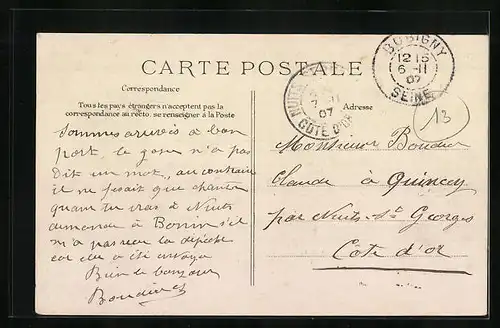 CARTE POSTALE
Correspondance
Tous les pays étrangers n'acceptent pas la
correspondance au recto, se renseigner à la Poste
Adresse
BOBIGNY
12 15
6 -11
07
SEINE
NUITS
7 -11
07
COTE D'OR
13
Sommes arrivés a bon
port, le gose n'a pas
Dit un mot, au contraire
il ne fesait que chanter
quan tu iras a Nuits
demande à Bonin s'il
m'a passer la dépêche
car elle a été envoyé
Bien le bonjour
Monsieur
Claude à Quincey
par Nuits-St Georges
Côte d'or